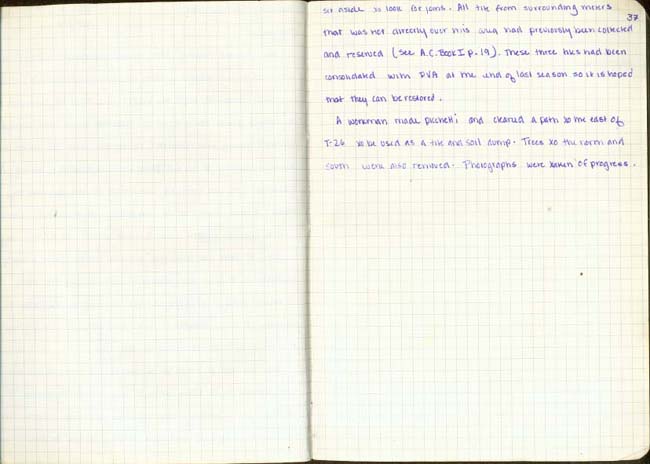 37
set aside to look for joins. All tile from surrounding meters
that was not directly over this area had previously been collected
and reserved (see A.C. Book I p. 19). These three tiles had been
consolidated with PVA at the end of last season so it is hoped
that they can be restored.
A workman made picchetti and cleared a path to the east of
T-26 to be used as a tile and soil dump. Trees to the north and
south were also removed. Photographs were taken of progress.